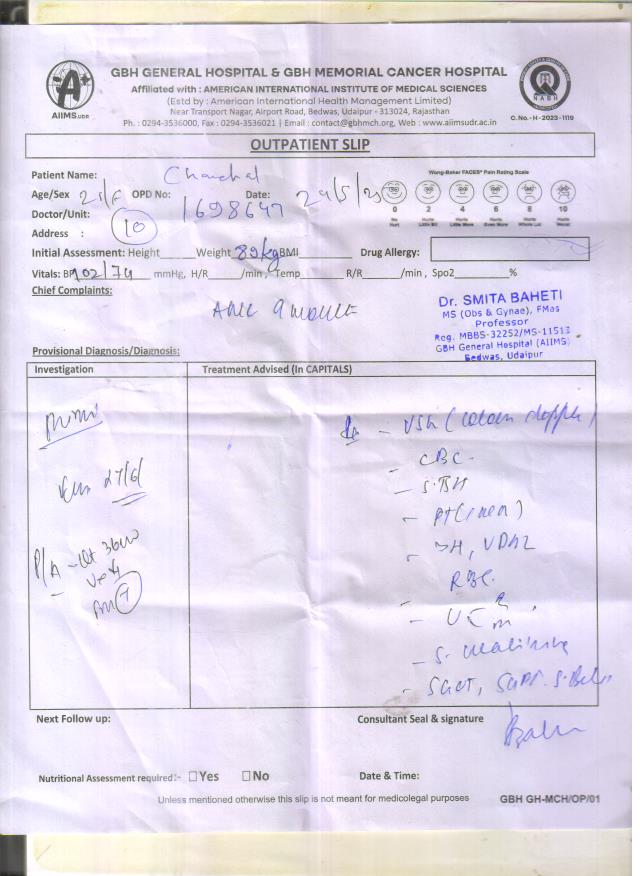 GBH GENERAL HOSPITAL & GBH MEMORIAL CANCER HOSPITAL
Affiliated with : AMERICAN INTERNATIONAL INSTITUTE OF MEDICAL SCIENCES
(Estd by : American International Health Management Limited)
Near Transport Nagar, Airport Road, Bedwas, Udaipur - 313024, Rajasthan
Ph. : 0294-3536000, Fax : 0294-3536021 | Email : contact@gbhmch.org, Web : www.aiimsudr.ac.in
AIIMS.UDR
NABH
C. No.- H - 2023 - 1119
OUTPATIENT SLIP
Patient Name: Chanchal
Wong-Baker FACES® Pain Rating Scale
Age/Sex OPD No: 1698647 Date:
0 2 4 6 8 10
No Hurt Hurts Little Bit Hurts Little More Hurts Even More Hurts Whole Lot Hurts Worst
Doctor/Unit:
Address : 10
Initial Assessment: Height Weight 89kg BMI Drug Allergy:
Vitals: BP 102/74 mmHg, H/R /min, Temp R/R /min, Spo2 %
Chief Complaints:
ANC 9 month
Dr. SMITA BAHETI
MS (Obs & Gynae), FMas
Professor
Reg. MBBS-32252/MS-11513
GBH General Hospital (AIIMS)
Bedwas, Udaipur
Provisional Diagnosis/Diagnosis:
Investigation Treatment Advised (In CAPITALS)
- USG (colour doppler)
- CBC
27/6
P/A
- VDRL
RBS
- SGOT, SGPT
Next Follow up: Consultant Seal & signature
Nutritional Assessment required:- Yes No Date & Time:
Unless mentioned otherwise this slip is not meant for medicolegal purposes GBH GH-MCH/OP/01